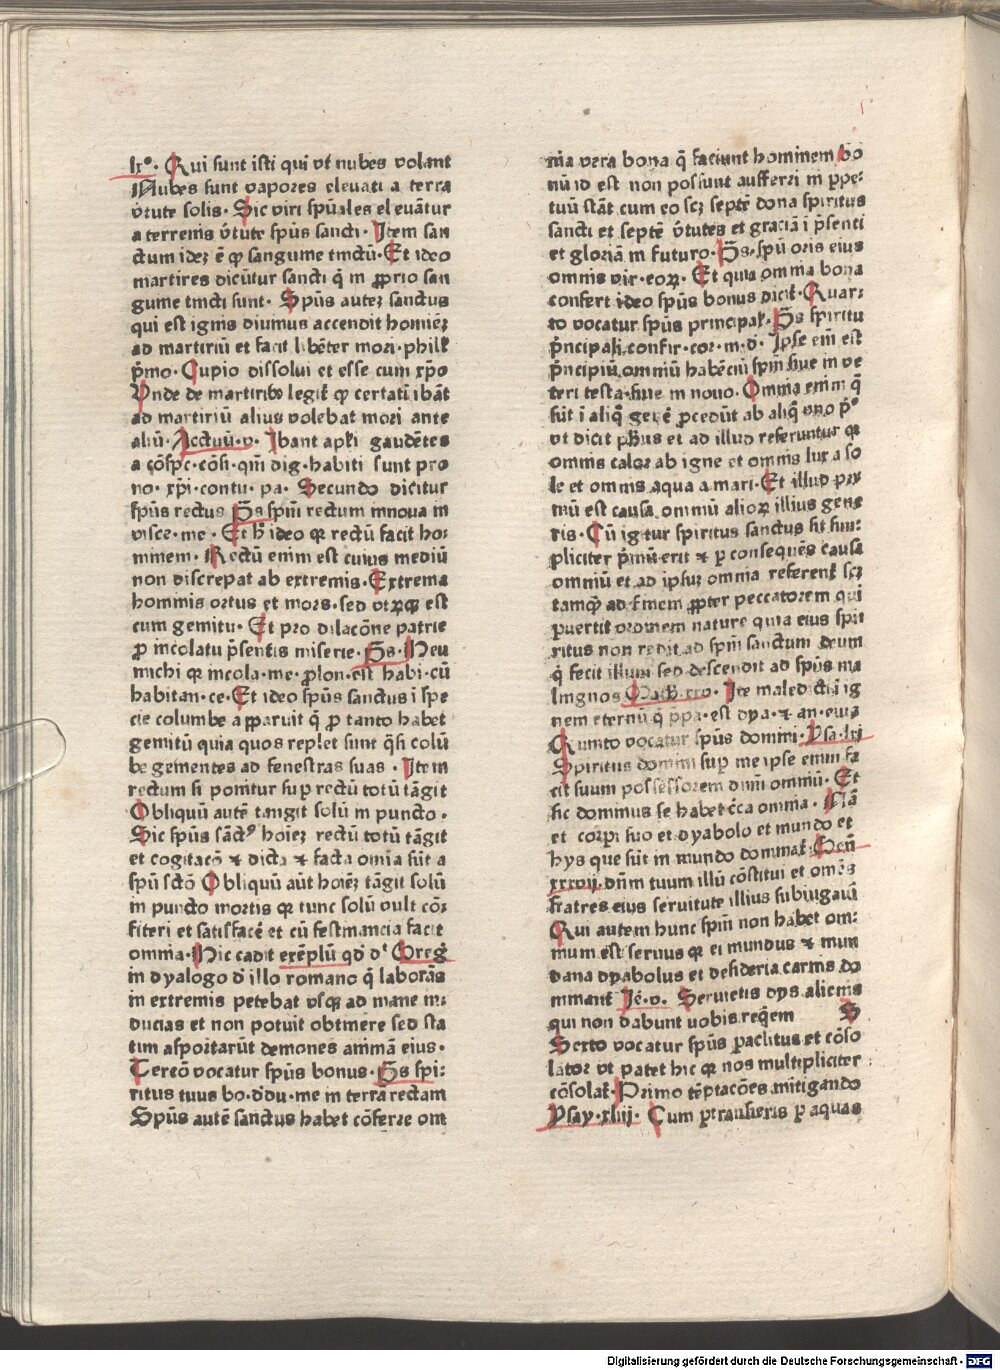 lxº. Qui sunt isti qui vt nubes volant
Nubes sunt vapores eleuati a terra
v̄tute solis. Sic viri spūales eleuātur
a terrenis v̄tute spūs sancti. Item san
ctum idez ē qꝫ sanguine tinctū. Et ideo
martires dicūtur sancti q̄ in ꝓprio san
guine tincti sunt. Spūs autez sanctus
qui est ignis diuinus accendit hominēz
ad martiriū et facit libēter mori. phill̄
p̄mo. Cupio dissolui et esse cum xp̄o
Vnde de martiribꝫ legit̄ qꝫ certati ibāt
ad martiriū alius volebat mori ante
aliū. Actuū. v. Ibant apl̄i gaudētes
a cōspc̄. cōsi. qm̄ dig. habiti sunt pro
no. xp̄i. contu. pa. Secundo dicitur
spūs rectus p̄s spm̄ rectum innoua in
visce. me. Et h̄ ideo qꝛ rectū facit ho:
minem. Rectū enim est cuius mediū
non discrepat ab extremis. Extrema
hominis ortus et mors. sed vtrꝫqꝫ est
cum gemitu. Et pro dilacōne patrie
ꝓ incolatu p̄sentis miserie. p̄s. Heu
michi qꝛ incola. me. prolon. est habi. cū
habitan. ce. Et ideo spūs sanctus ī spe
cie columbe apparuit q̄ ꝓ tanto habet
gemitū quia quos replet sunt q̄si colū
be gementes ad fenestras suas. Item
rectum si ponitur supꝛ rectū totū tāgit
Obliquū autē tangit solū in puncto.
Sic spūs sāct⁹ hoiez rectū totū tāgit
et cogitacō ⁊ dicta ⁊ facta omīa sūt a
spū scto Obliquū aūt hoiez tāgit solū
in puncto mortis qꝛ tunc solū vult cō:
fiteri et satisfacē et cū festinancia facit
omnia. Hic cadit exēplū qd̄ dᵗ Gregꝰ
in dyalogo d̄ illo romano q̄ laborās
in extremis petebat vsqꝫ ad mane in:
ducias et non potuit obtinere sed sta
tim asportarūt demones animā eius.
Tercō vocatur spūs bonus. p̄s spi:
ritus tuus bo. d̄du. me in terrā rectam
Spūs autē sanctus habet cōferre om
nia vera bona q̄ faciunt hominem bo
nū id est non possunt aufferri in ꝑpe:
tuū stāt cum eo scz septē dona spiritus
sancti et septē v̄tutes et graciā ī p̄senti
et gloriā in futuro. p̄s. spū oris eius
omnis vir. eoꝝ. Et quia omnia bona
confert ideo spūs bonus dicit̄. Quar:
to vocatur spūs principal̄. p̄s spiritu
p̄ncipali. confir. cor. m. d̄. Ipse eni est
p̄ncipiū omniū habēciū spm̄ siue in ve
teri testa. siue in nouo. Omnia enim q̄
sūt ī aliq̄ genē ꝓcedūt ab aliq̄ vno pº
vt dicit ph̄us et ad illud referuntur qꝛ
omnis calor ab igne et omnis lux a so
le et omnis aqua a mari. Et illud pri
mū est causa omniū alioꝝ illius gene
ris. Cū igitur spiritus sanctus sit sim:
pliciter p̄mū erit ⁊ ꝑ consequēs causa
omniū et ad ipsuz omnia referent̄ scz
tamqꝫ ad finem ꝓpter peccatorem qui
ꝑuertit ordinem nature quia eius spi
ritus non redit ad spm̄ sanctum deum
q̄ fecit illum sed descendit ad spūs ma
lingnos Math. xxv. Ite maledicti ī ig
nem eternū q̄ p̄pa. est dya. ⁊ an. eius
Quinto vocatur spūs domini. Ysa. lxi
Spiritus domini supꝛ me ipse enim fa
cit suum possessorem dnm̄ omniū. Et
sic dominus se habet c̄ca omnia. Nā
et corpi suo et dyabolo et mundo et
hys que sūt in mundo dominat̄. Gen̄
xxxvij. dn̄m tuum illū cōstitui et omēs
fratres eius seruitute illius subiugaui
Qui autem hunc spm̄ non habet om:
nium est seruus qꝛ ei mundus ⁊ mun
dana dyabolus et desideria carnis do
minant̄ Jē. v. Seruietis dys alienis
qui non dabunt uobis reqꝫem S
Sexto vocatur spūs ꝑaclitus et cōso
lator vt patet hic qꝛ nos multipliciter
cōsolat̄. Primo tēptacōes mitigando
Ysay. xliij. Cum ꝑtransieris ꝑ aquas
Digitalisierung gefördert durch die Deutsche Forschungsgemeinschaft - DFG